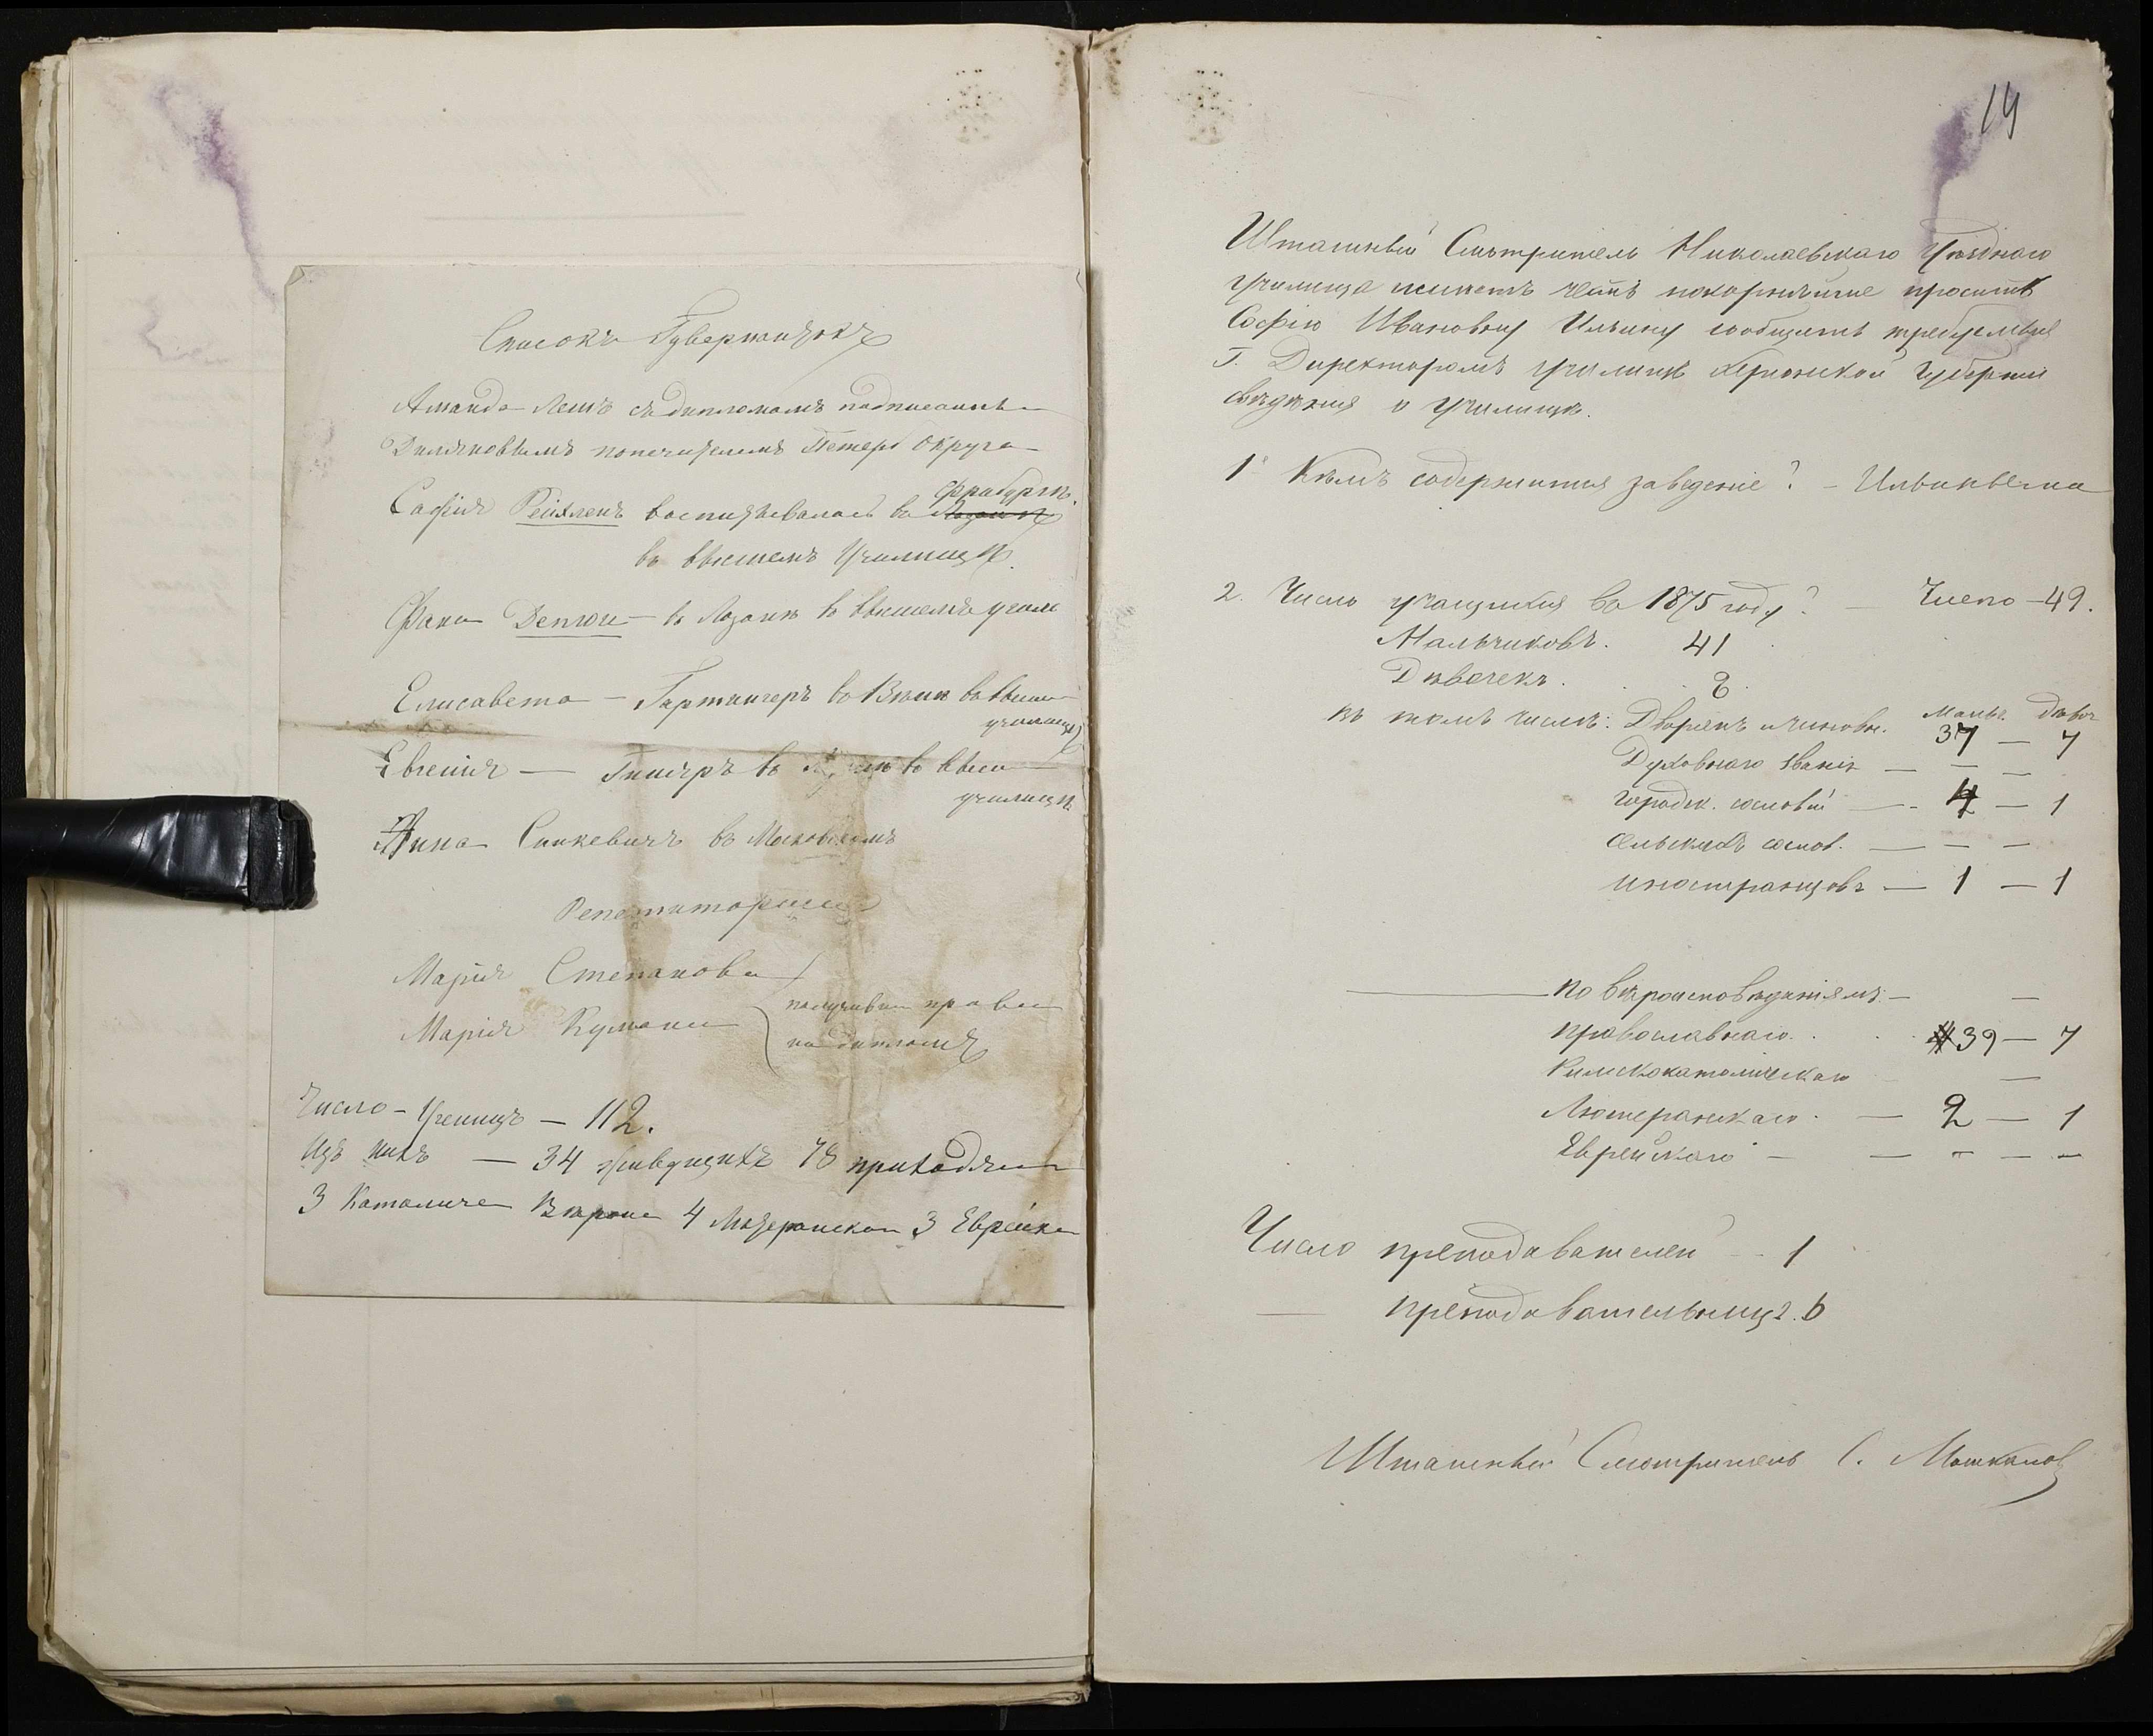 Списокъ Гувернантокъ
Аманда Лешъ съ дипломомъ подписаннь
Деляновымъ попечителемъ Петерб Округа
Софія Рейхленъ воспитывалась въ Фрибургѣ.
въ высшемъ Училищѣ.
Фани Депюи — въ Лозанѣ въ высшемъ учил
Елисавета — Гартингеръ въ Вѣнѣ въ высш
училищѣ
Евгенія — въ высш
училищѣ
Анна Синкевичъ въ Московскомъ
Репетиторши
Марія Степанова
Марія Кумани получивш права
на дипломъ
Число Ученицъ — 112.
Изъ нихъ — 34 живущихъ 78 приходящ
3 Католичес Вѣроис 4 Лютеранской 3 Еврейка
14
Штатный Смотритель Николаевскаго Уѣзднаго
Училища имѣетъ честь покорнѣйше просить
Софію Ивановну Ильину сообщить требуемые
Г. Директоромъ училищъ Херсонской Губерніи
свѣденія о училищѣ.
1 Кѣмъ содержится заведеніе? — Ильиныма
2. Число учащихся въ 1875 году? — Число — 49.
Мальчиковъ. 41
Дѣвочекъ. 8.
въ томъ числѣ: Дворянъ и чиновн. Мальч. Дѣвоч
37 — 7
Духовнаго званія — — —
городск. сословій — 4 — 1
сельскихъ сослов. — — —
иностранцовъ — 1 — 1
по вѣроисповѣданіямъ — —
православнаго. 39 — 7
Римскокатолическаго —
Лютеранскаго. — 2 — 1
Еврейскаго — — — — —
Число преподавателей — 1
— преподавательницъ. 6
Штатный Смотритель С. Мошкалов